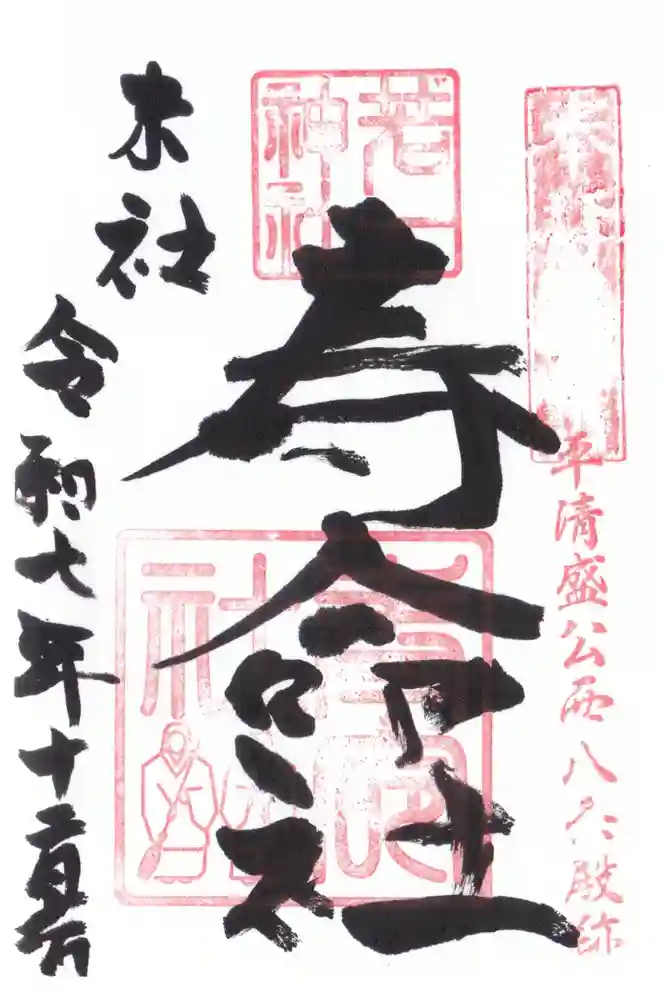 平清盛公西八条殿跡
若一
神社
寿命社
末社
令和七年十二月